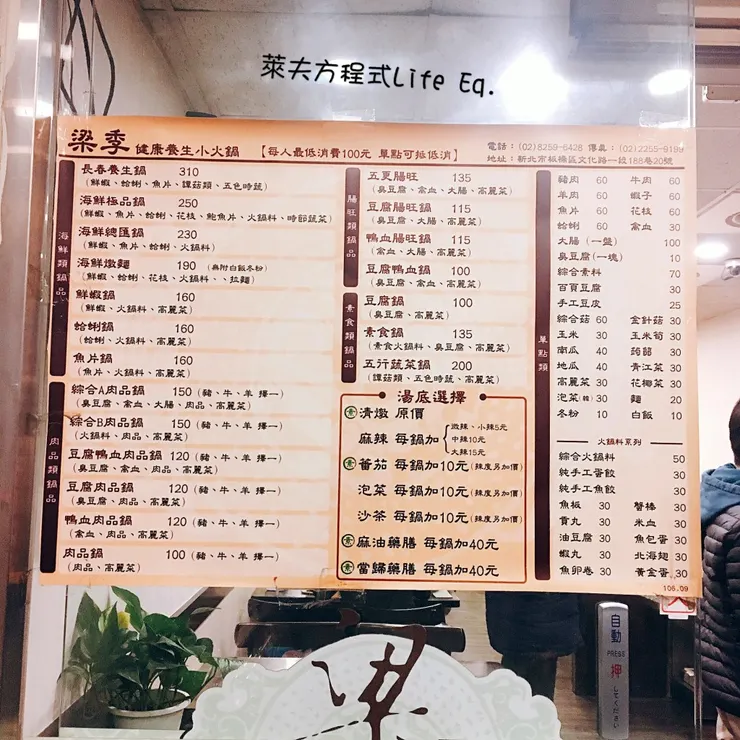 萊夫方程式Life Eq.
梁季 健康養生小火鍋 【每人最低消費100元 單點可抵低消】
電話：(02)8259-6428 傳真：(02)2255-9199
地址：新北市板橋區文化路一段188巷20號
海鮮類鍋品
長春養生鍋 310
(鮮蝦、蛤蜊、魚片、蹀菇類、五色時蔬)
海鮮極品鍋 250
(鮮蝦、魚片、蛤蜊、花枝、鮑魚片、火鍋料、時節蔬菜)
海鮮總匯鍋 230
(鮮蝦、魚片、蛤蜊、火鍋料)
海鮮燉麵 190 (無附白飯冬粉)
(鮮蝦、蛤蜊、花枝、火鍋料、、拉麵)
鮮蝦鍋 160
(鮮蝦、火鍋料、高麗菜)
蛤蜊鍋 160
(蛤蜊、火鍋料、高麗菜)
魚片鍋 160
(魚片、火鍋料、高麗菜)
肉品類鍋品
綜合A肉品鍋 150 (豬、牛、羊 擇一)
(臭豆腐、禽血、大腸、肉品、高麗菜)
綜合B肉品鍋 150 (豬、牛、羊 擇一)
(火鍋料、肉品、高麗菜)
豆腐鴨血肉品鍋 120 (豬、牛、羊 擇一)
(臭豆腐、禽血、肉品、高麗菜)
豆腐肉品鍋 120 (豬、牛、羊 擇一)
(臭豆腐、肉品、高麗菜)
鴨血肉品鍋 120 (豬、牛、羊 擇一)
(禽血、肉品、高麗菜)
肉品鍋 100 (豬、牛、羊 擇一)
(肉品、高麗菜)
腸旺類鍋品
五更腸旺 135
(臭豆腐、禽血、大腸、高麗菜)
豆腐腸旺鍋 115
(臭豆腐、大腸、高麗菜)
鴨血腸旺鍋 115
(禽血、大腸、高麗菜)
豆腐鴨血鍋 100
(臭豆腐、禽血、高麗菜)
素食類鍋品
豆腐鍋 100
(臭豆腐、高麗菜)
素食鍋 135
(素食火鍋料、臭豆腐、高麗菜)
五行蔬菜鍋 200
(蹀菇類、五色時蔬、高麗菜)
湯底選擇
素 清燉 原價
麻辣 每鍋加
微辣、小辣5元
中辣10元
大辣15元
素 番茄 每鍋加10元(辣度另加價)
泡菜 每鍋加10元(辣度另加價)
沙茶 每鍋加10元(辣度另加價)
素 麻油藥膳 每鍋加40元
素 當歸藥膳 每鍋加40元
單點類
豬肉 60 牛肉 60
羊肉 60 蝦子 60
魚片 60 花枝 60
蛤蜊 60 禽血 30
大腸(一盤) 100
臭豆腐(一塊) 10
綜合素料 70
百頁豆腐 30
手工豆皮 25
綜合菇 60 金針菇 30
玉米 30 玉米筍 30
南瓜 40 蒟蒻 30
地瓜 40 青江菜 30
高麗菜 30 花椰菜 30
泡菜(韓) 30 麵 20
冬粉 10 白飯 10
火鍋料系列
綜合火鍋料 50
純手工蛋餃 30
純手工魚餃 30
魚板 30 蟹棒 30
貢丸 30 米血 30
油豆腐 30 魚包蛋 30
蝦丸 30 北海翅 30
魚卵卷 30 黃金蛋 30
106.09
梁
自動
PRESS
押
してください